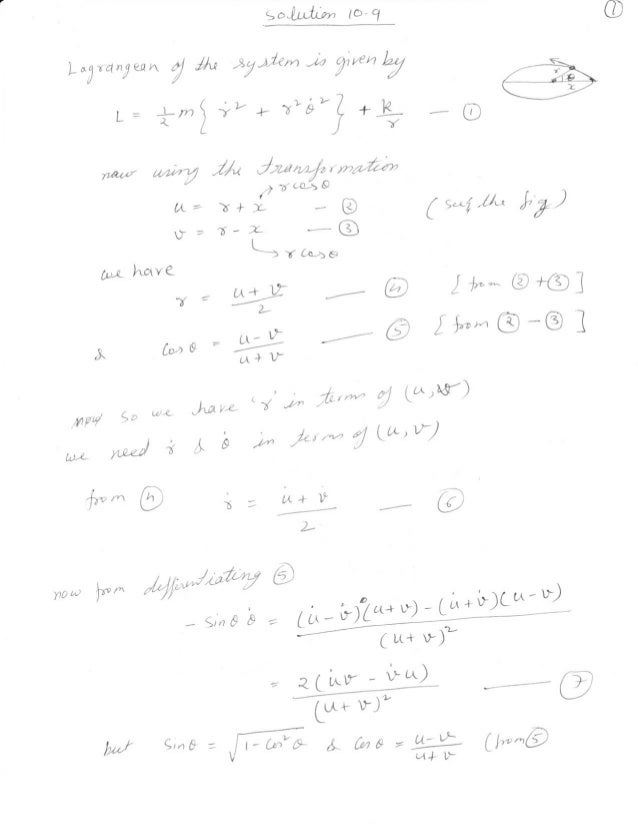 Solution 10-9
①
Lagrangean of the system is given by
L = 1/2 m { ṙ² + r² θ̇² } + k/r — ①
r θ
x
now using the transformation
r cos θ
u = r + x — ②
(see the fig)
v = r - x — ③
r cos θ
we have
r = (u + v)/2 — ④ [ from ② + ③ ]
& Cos θ = (u - v)/(u + v) — ⑤ [ from ② - ③ ]
now so we have 'r' in terms of (u, v)
we need ṙ & θ̇ in terms of (u, v)
from ④ ṙ = (u̇ + v̇)/2 — ⑥
now from differentiating ⑤
- Sin θ θ̇ = ((u̇ - v̇)(u + v) - (u̇ + v̇)(u - v))/(u + v)²
= 2(u̇v - v̇u)/(u + v)² — ⑦
but Sin θ = √(1 - Cos² θ) & Cos θ = (u - v)/(u + v) (from ⑤